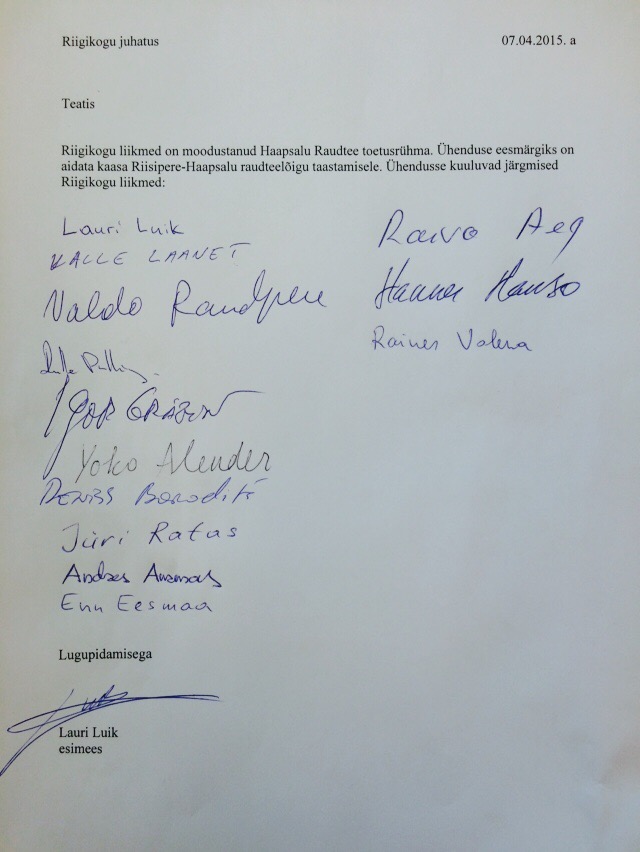 Riigikogu juhatus 07.04.2015. a
Teatis
Riigikogu liikmed on moodustanud Haapsalu Raudtee toetusrühma. Ühenduse eesmärgiks on
aidata kaasa Riisipere-Haapsalu raudteelõigu taastamisele. Ühendusse kuuluvad järgmised
Riigikogu liikmed:
Lauri Luik
KALLE LAANET
Valdo Randpere
IGOR GRÄZIN
Yoko Alender
DENISS Boroditš
Jüri Ratas
Andres Ammas
Enn Eesmaa
Raivo Aeg
Hannes Hanso
Rainer Vakra
Lugupidamisega
Lauri Luik
esimees